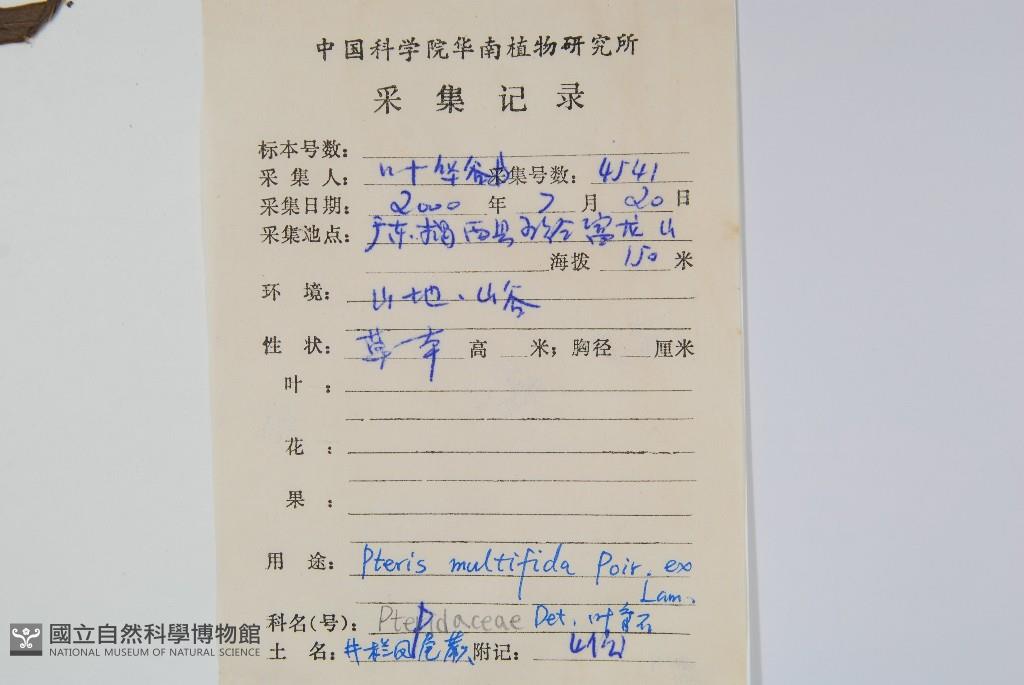 中国科学院华南植物研究所
采 集 记 录
标本号数：
采 集 人： 叶华谷 采集号数： 4541
采集日期： 2000 年 7 月 20 日
采集地点： 广东·揭西县 龙山
海拨 150 米
环 境： 山地、山谷
性 状： 草本 高 米；胸径 厘米
叶 ：
花 ：
果 ：
用 途： Pteris multifida Poir. ex
Lam.
科名(号)： Pteridaceae Det. 叶育石
土 名： 井栏凤尾蕨 附记：
國立自然科學博物館
NATIONAL MUSEUM OF NATURAL SCIENCE